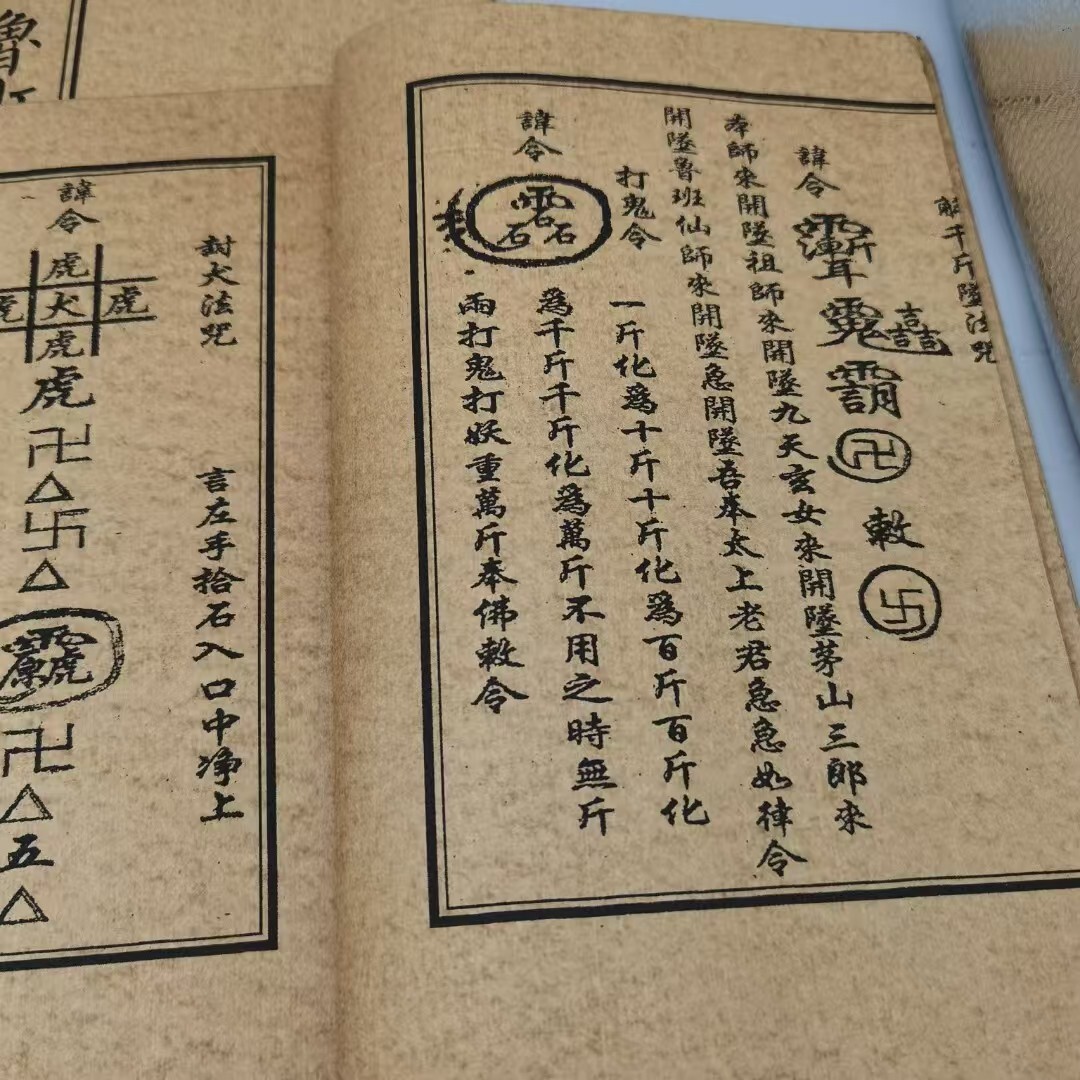 解千斤墜法咒
諱令
敕
本師來開墜祖師來開墜九天玄女來開墜茅山三郎來
開墜魯班仙師來開墜急開墜吾奉太上老君急急如律令
打鬼令
一斤化為十斤十斤化為百斤百斤化
為千斤千斤化為萬斤不用之時無斤
雨打鬼打妖重萬斤奉佛敕令
諱令
石石
封犬法咒
言左手拾石入口中净上
諱令
虎
虎犬虎
虎
虎
卍
△
卐
△
卍
△
五
△
魯